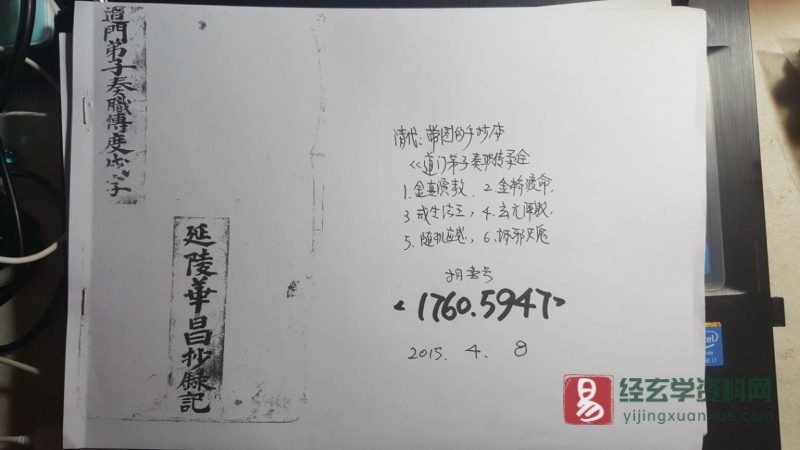 道門弟子奏職傳度式子
延陵華昌抄錄記
清代:带图的手抄本
《道门弟子奏职传录全
1.金真演教、2.金桥渡命,
3.戒生法王,4.玄九阐教,
5.随机应感,6.除邪灭鬼
<1760.5947>
2015. 4. 8
intel
易
经玄学资料网
yijingxuanxue.com